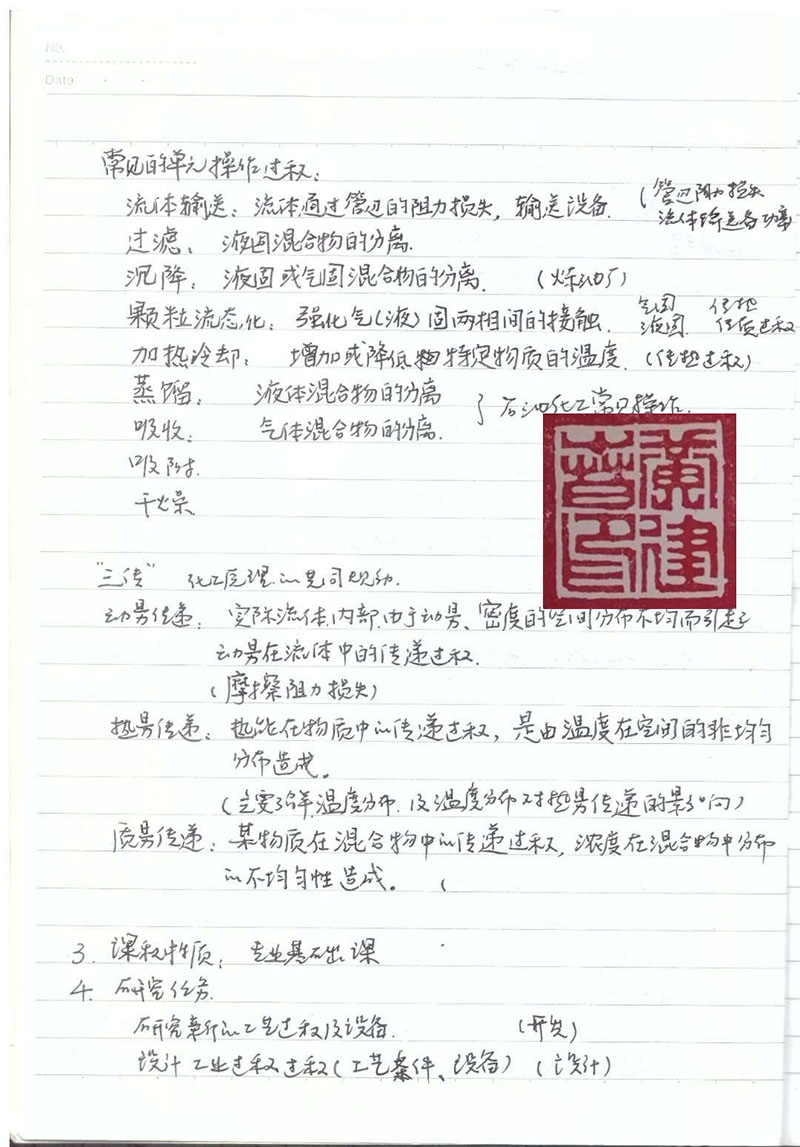 No.
Date
常见的单元操作过程：
流体输送：流体通过管边的阻力损失，输送设备.（管边阻力损失
流体输送设备功率
过滤、液固混合物的分离.
沉降：液固或气固混合物的分离.
颗粒流态化：强化气(液)固两相间的接触. 气固 传热
液固. 传质过程
加热冷却：增加或降低物特定物质的温度.（传热过程）
蒸馏：液体混合物的分离 } 石油化工常见操作.
吸收：气体混合物的分离.
吸附.
干燥.
"三传" 化工原理的共同规律.
动量传递：实际流体内部由于动量、密度的空间分布不均而引起
动量在流体中的传递过程.
（摩擦阻力损失）
热量传递：热能在物质中的传递过程，是由温度在空间的非均匀
分布造成。
（主要了解温度分布.及温度分布对热量传递的影响）
质量传递：某物质在混合物中的传递过程，浓度在混合物中分布
的不均匀性造成。（
3. 课程性质：专业基础课
4. 研究任务.
研究新的工艺过程及设备.（开发）
设计工业过程过程（工艺条件、设备）（设计）